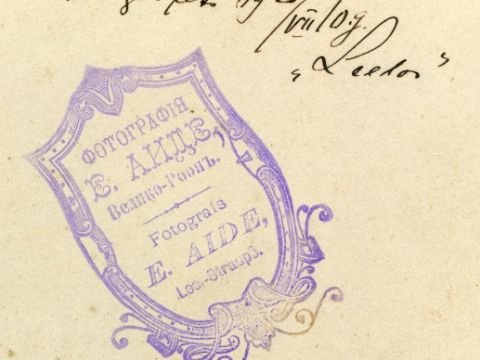 /VII 10 g.
„Leelos"
ФОТОГРАФІЯ
Е. АИДЕ,
Велико-Роопъ.
Fotografs
E. AIDE,
Leel-Straupē.